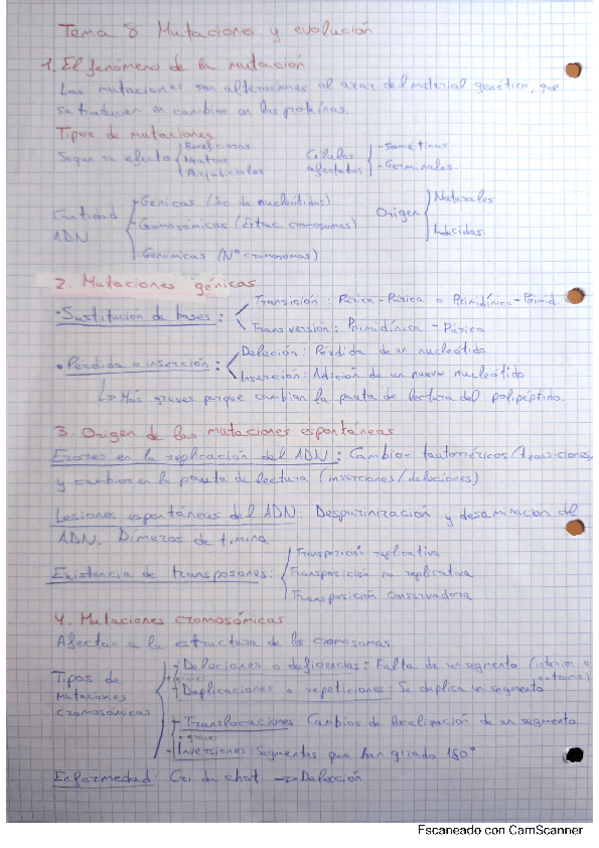 Tema 8 Mutaciones y evolución
1. El fenómeno de la mutación
Las mutaciones son alteraciones al azar del material genético, que
se traducen en cambios en las proteínas.
Tipos de mutaciones
Según su efecto Beneficiosas Neutras Perjudiciales Células afectadas - Somáticas - Germinales.
Cantidad ADN - Génicas (Sec de nucleótidos) - Cromosómicas (Estruc cromosomas) - Genómicas (Nº cromosomas) Origen Naturales Inducidas.
2. Mutaciones génicas
• Sustitución de bases: Transición: Púrica - Púrica o Pirimidínica - Pirimid.
Transversión: Pirimidínica - Púrica
• Pérdida o inserción: Delección: Pérdida de un nucleótido
Inserción: Adición de un nuevo nucleótido
↳ Más graves porque cambian la pauta de lectura del polipéptido.
3. Origen de las mutaciones espontáneas
Errores en la replicación del ADN: Cambios tautoméricos/transiciones,
y cambios en la pauta de lectura (inserciones/delaciones)
Lesiones espontáneas del ADN: Despurinización y desaminación del
ADN. Dímeros de timina
Existencia de transposones: Transposición replicativa
Transposición no replicativa
Transposición conservadora
4. Mutaciones cromosómicas
Afectan a la estructura de los cromosomas
Tipos de mutaciones cromosómicas
- Delaciones o deficiencias: Falta de un segmento (interno o externo)
- Duplicaciones o repeticiones: Se duplica un segmento
- Translocaciones: Cambios de localización de un segmento
- Inversiones: Segmentos que han girado 180°
Enfermedad: Cri du chat → Delección
Escaneado con CamScanner